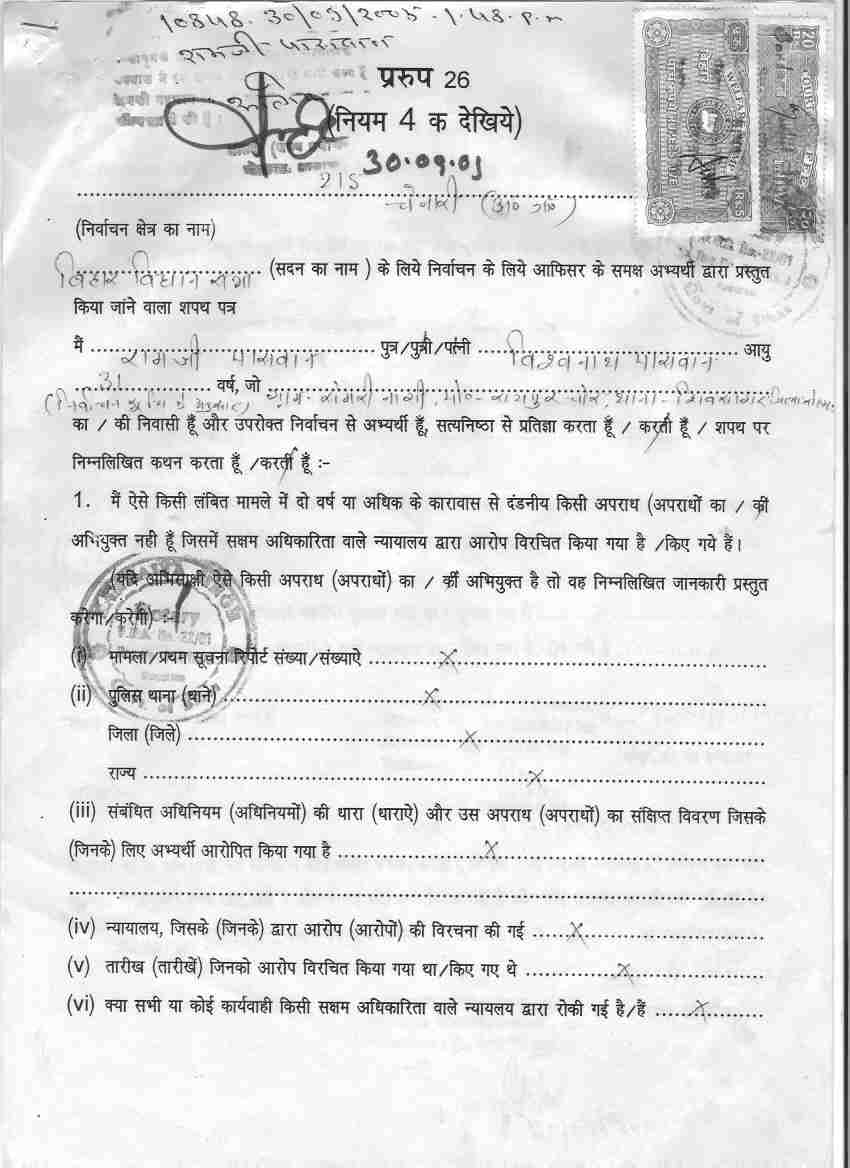 10848. 30/09/2005. 1.48. p.m
रामजी पासवान
प्ररुप 26
(नियम 4 क देखिये)
30.09.05
चेनारी (अ० जा०)
(निर्वाचन क्षेत्र का नाम)
बिहार विधान सभा (सदन का नाम ) के लिये निर्वाचन के लिये आफिसर के समक्ष अभ्यर्थी द्वारा प्रस्तुत
किया जांने वाला शपथ पत्र
मैं रामजी पासवान पुत्र/पुत्री/पत्नी विश्वनाथ पासवान आयु
31 वर्ष, जो ग्राम- सेमरी पो०- रायपुर चोर, थाना- शिवसागर
का / की निवासी हूँ और उपरोक्त निर्वाचन से अभ्यर्थी हूँ, सत्यनिष्ठा से प्रतिज्ञा करता हूँ / करती हूँ / शपथ पर
निम्नलिखित कथन करता हूँ /करती हूँ :-
1. मैं ऐसे किसी लंबित मामले में दो वर्ष या अधिक के कारावास से दंडनीय किसी अपराध (अपराधों का / की
अभियुक्त नही हूँ जिसमें सक्षम अधिकारिता वाले न्यायालय द्वारा आरोप विरचित किया गया है /किए गये हैं।
(यदि अभिसाक्षी ऐसे किसी अपराध (अपराधों) का / की अभियुक्त है तो वह निम्नलिखित जानकारी प्रस्तुत
करेगा/करेगी) :-
(i) मामला/प्रथम सूचना रिपोर्ट संख्या/संख्याऐ X
(ii) पुलिस थाना (थाने) X
जिला (जिले) X
राज्य X
(iii) संबंधित अधिनियम (अधिनियमों) की धारा (धाराऐ) और उस अपराध (अपराधों) का संक्षिप्त विवरण जिसके
(जिनके) लिए अभ्यर्थी आरोपित किया गया है X
(iv) न्यायालय, जिसके (जिनके) द्वारा आरोप (आरोपों) की विरचना की गई X
(v) तारीख (तारीखें) जिनको आरोप विरचित किया गया था/किए गए थे X
(vi) क्या सभी या कोई कार्यवाही किसी सक्षम अधिकारिता वाले न्यायलय द्वारा रोकी गई है/हैं X